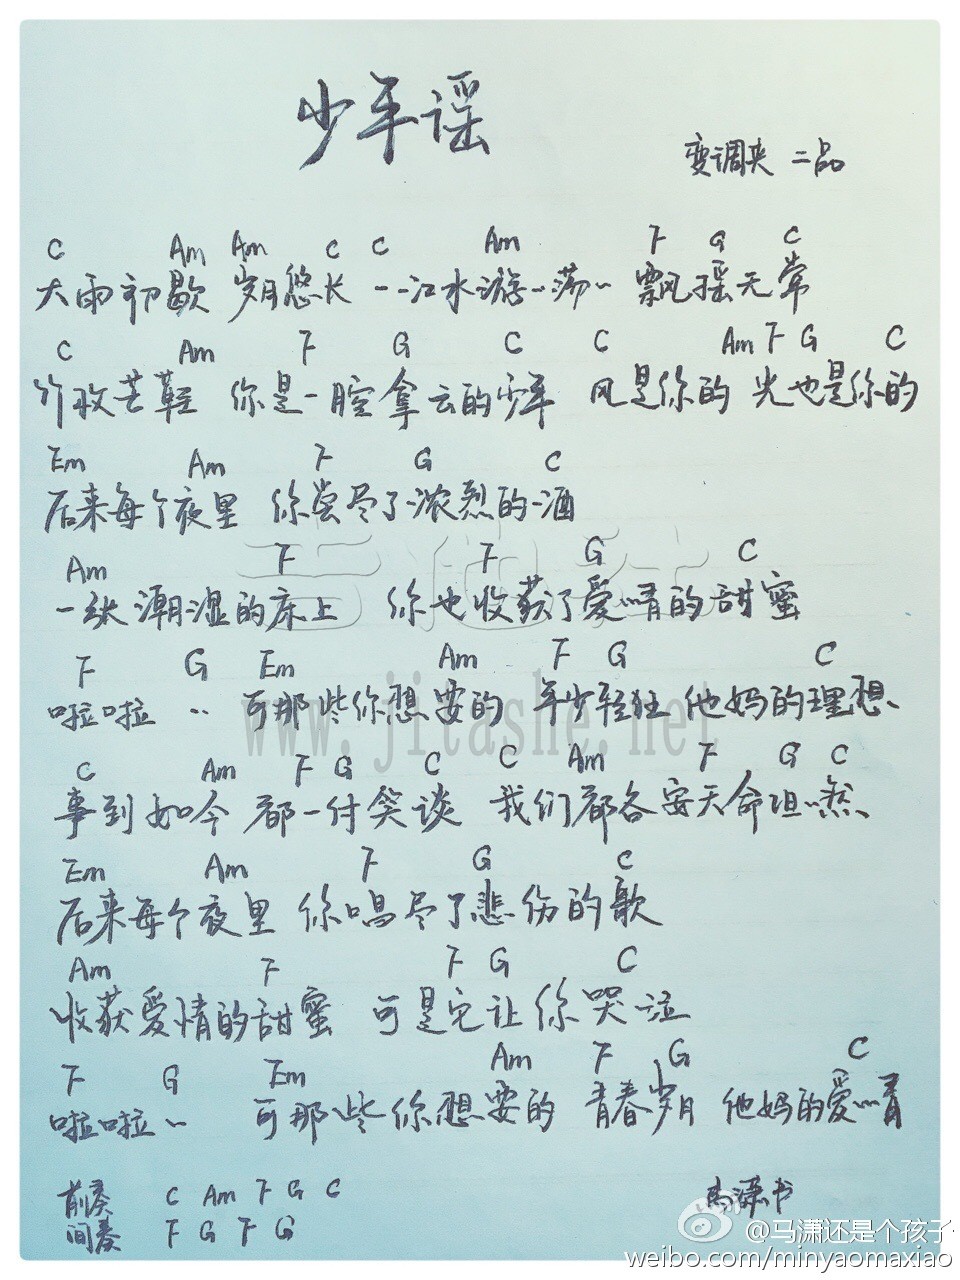 少年谣
变调夹 二品
C Am Am C C Am F G C
大雨初歇 岁月悠长 --江水游..荡.. 飘摇无常
C Am F G C C Am F G C
竹杖芒鞋 你是一腔拿云的少年 风是你的 光也是你的
Em Am F G C
后来每个夜里 你尝尽了浓烈的酒
Am F F G C
一张潮湿的床上 你也收获了爱情的甜蜜
F G Em Am F G C
啦啦 .. 可那些你想要的 年少轻狂 他妈的理想
C Am F G C C Am F G C
事到如今 都一付笑谈 我们都各安天命坦..然
Em Am F G C
后来每个夜里 你唱尽了悲伤的歌
Am F F G C
收获爱情的甜蜜 可是它让你哭泣
F G Em Am F G C
啦啦.. 可那些你想要的 青春岁月 他妈的爱情
前奏 C Am F G C
间奏 F G F G
马潇书
吉他社
www.jitashe.net
@马潇还是个孩子
weibo.com/minyaomaxiao